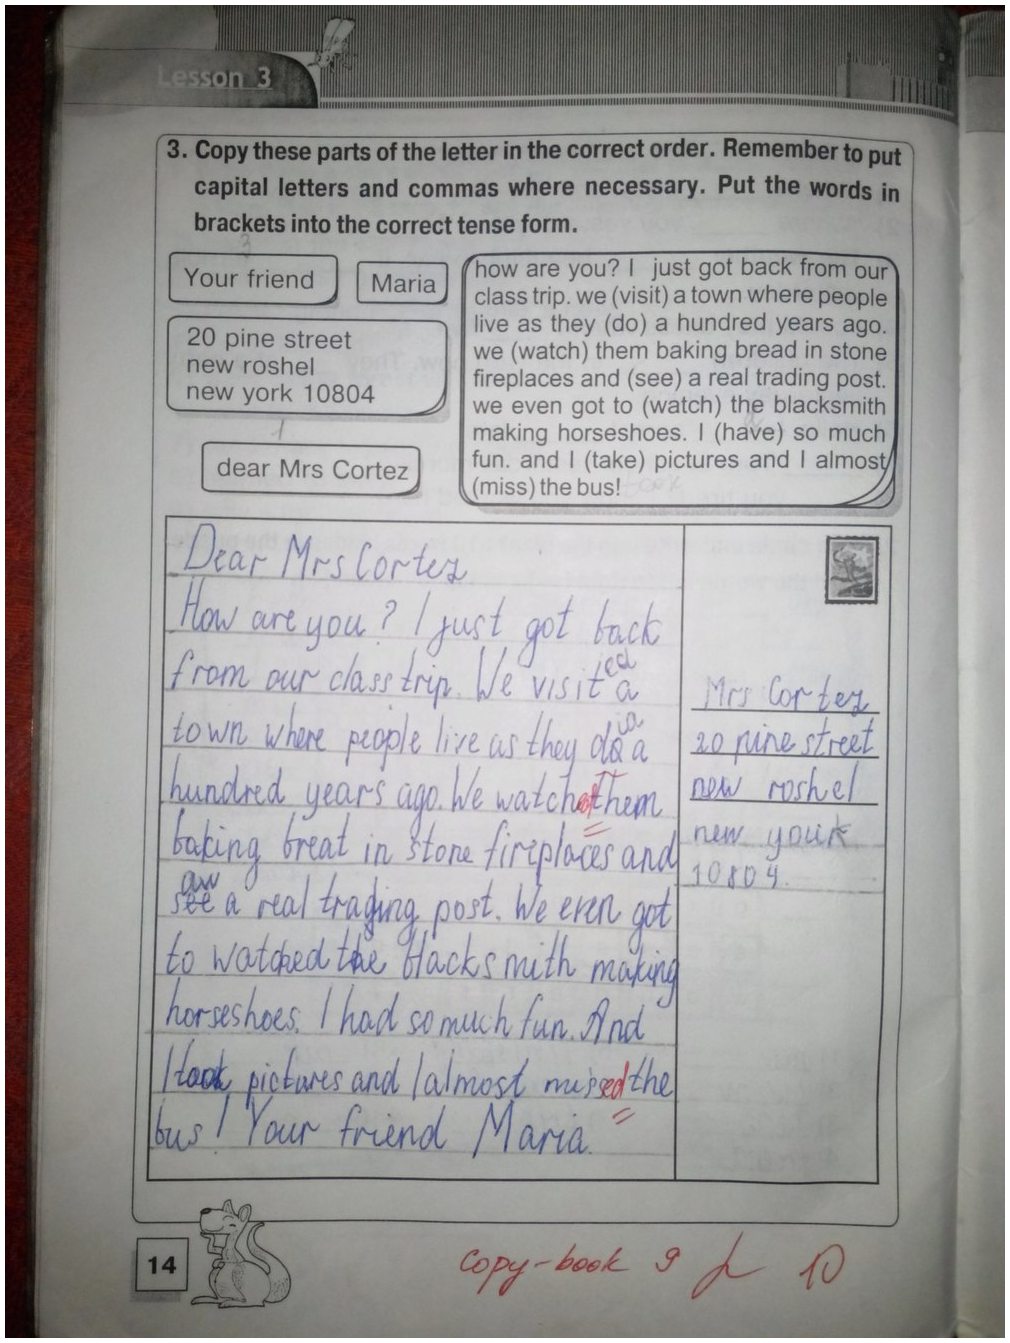 Lesson 3
3. Copy these parts of the letter in the correct order. Remember to put
capital letters and commas where necessary. Put the words in
brackets into the correct tense form.
3
Your friend
Maria
20 pine street
new roshel
new york 10804
1
dear Mrs Cortez
how are you? I just got back from our
class trip. we (visit) a town where people
live as they (do) a hundred years ago.
we (watch) them baking bread in stone
fireplaces and (see) a real trading post.
we even got to (watch) the blacksmith
making horseshoes. I (have) so much
fun. and I (take) pictures and I almost
(miss) the bus!
Dear Mrs Cortez
How are you? I just got back
from our class trip. We visited a
town where people live as they did a
hundred years ago. We watched them
baking breat in stone fireplaces and
saw a real trading post. We even got
to watched the blacksmith making
horseshoes. I had so much fun. And
I took pictures and I almost missed the
bus! Your friend Maria.
Mrs Cortez
20 pine street
new roshel
new yourk
10804.
14
copy-book 9
10